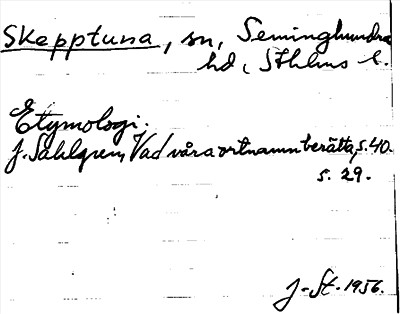 Skepptuna, sn, Seminghundra
hd, Sthlms l.
Etymologi.
J. Sahlgren, Vad våra ortnamn berätta, s. 40.
s. 29.
J. St. 1956.